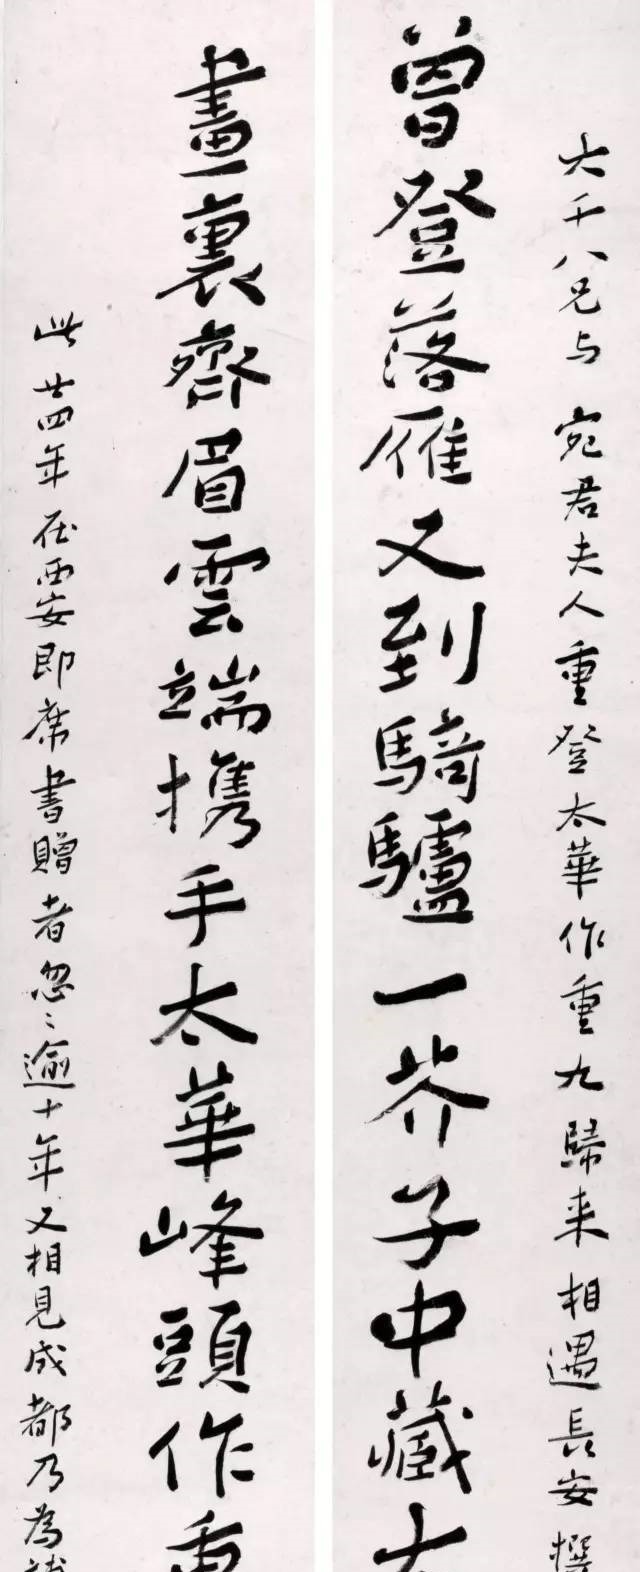 大千八兄与宛君夫人重登太華作重九歸来相遇長安撰
曾登落雁又到騎驢一芥子中藏大
畫裏齊眉雲端携手太華峰頭作重
此廿四年在西安即席書贈者忽〻逾十年又相見成都乃為